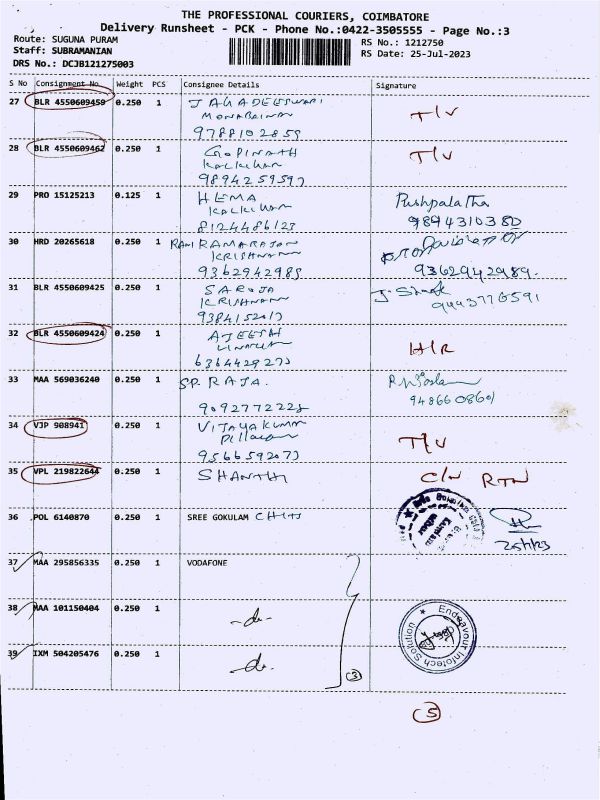 THE PROFESSIONAL COURIERS, COIMBATORE
Delivery Runsheet - PCK - Phone No.:0422-3505555 - Page No.:3
Route: SUGUNA PURAM
RS No.: 1212750
Staff: SUBRAMANIAN
RS Date: 25-Jul-2023
DRS No.: DCJB121275003
S No Consignment No. Weight PCS Consignee Details Signature
27 BLR 4550609459 0.250 1 JAGADEESWARI
T/V
9788102859
28 BLR 4550609462 0.250 1 GOPINATH
T/V
9894259597
29 PRO 15125213 0.125 1 HEMA Pushpalatha
8124486123 9894310380
30 HRD 20265618 0.250 1 RAMARAJAN
KRISHNAN
9362942989 9362942989.
31 BLR 4550609425 0.250 1 SAROJA
KRISHNAN 9443776591
9384152017
32 BLR 4550609424 0.250 1 AJEESH
H/R
6364429273
33 MAA 569036240 0.250 1 SP. RAJA.
9486608601
9092772228
34 VJP 908941 0.250 1 VIJAYAKUMAR
T/V
9566592073
35 VPL 219822644 0.250 1 SHANTHI C/N RTN
36 POL 6140870 0.250 1 SREE GOKULAM CHITS
25/7/23
37 MAA 295856335 0.250 1 VODAFONE
38 MAA 101150404 0.250 1 -do-
Endeavour Infotech Solution
39 IXM 504205476 0.250 1 -do.
(3)
(5)